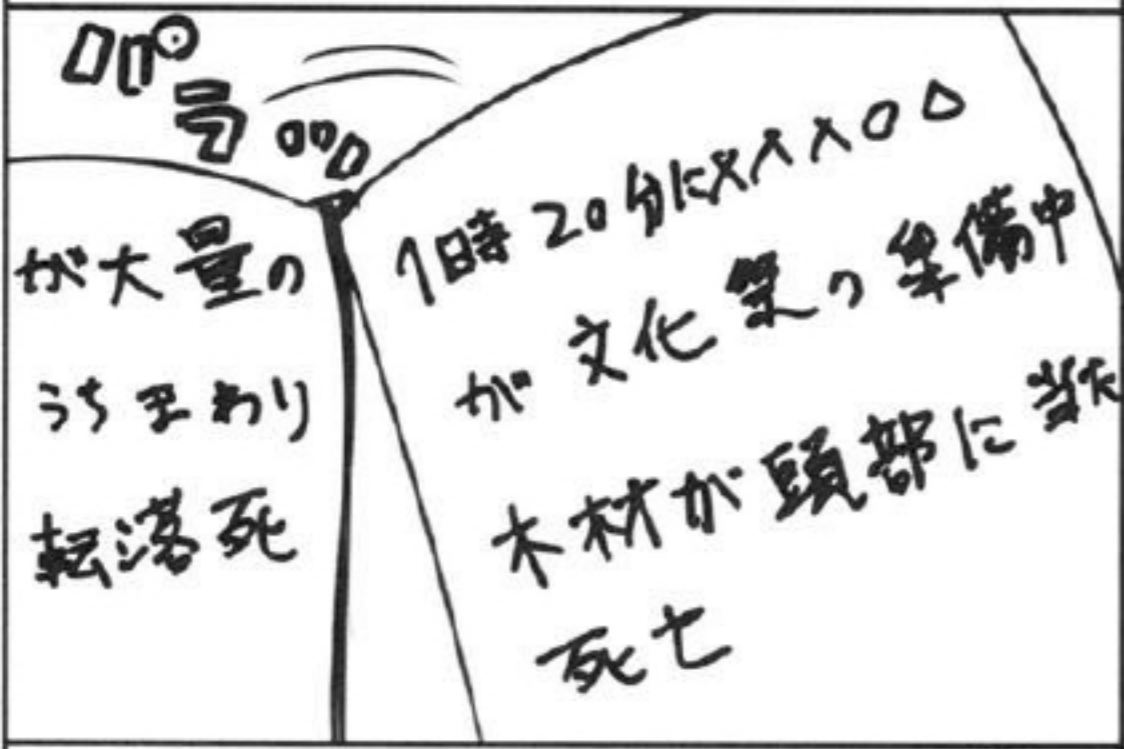 パラッ
が大量の
うちまわり
転落死
1時20分に×××〇△
が文化祭の準備中
木材が頭部に当た
死亡